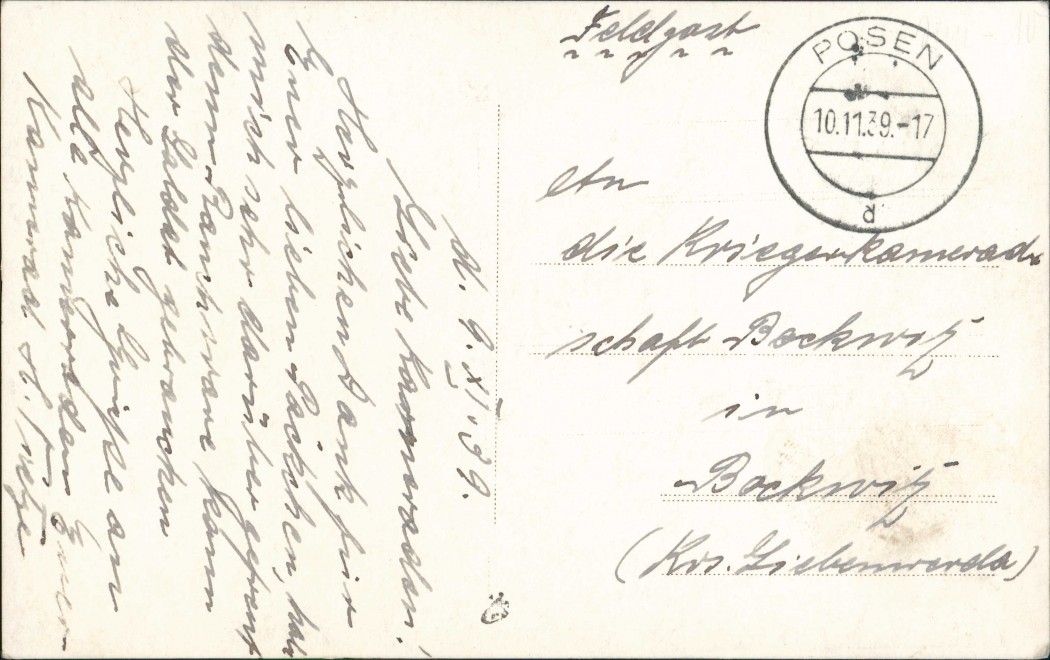 Feldpost
POSEN
10.11.39.-17
d
An
die Kriegerkamerad-
schaft Bockwitz
in
Bockwitz
(Krs. Liebenwerda)
d. 9. XI. 39.
Liebe Kameraden!
Herzlichen Dank für
Euer lieben Päckchen, hab
mich sehr darüber gefreut
denn Rauchware kann
der Soldat gebrauchen
Herzliche Grüße an
alle Kameraden Euer
Kamerad